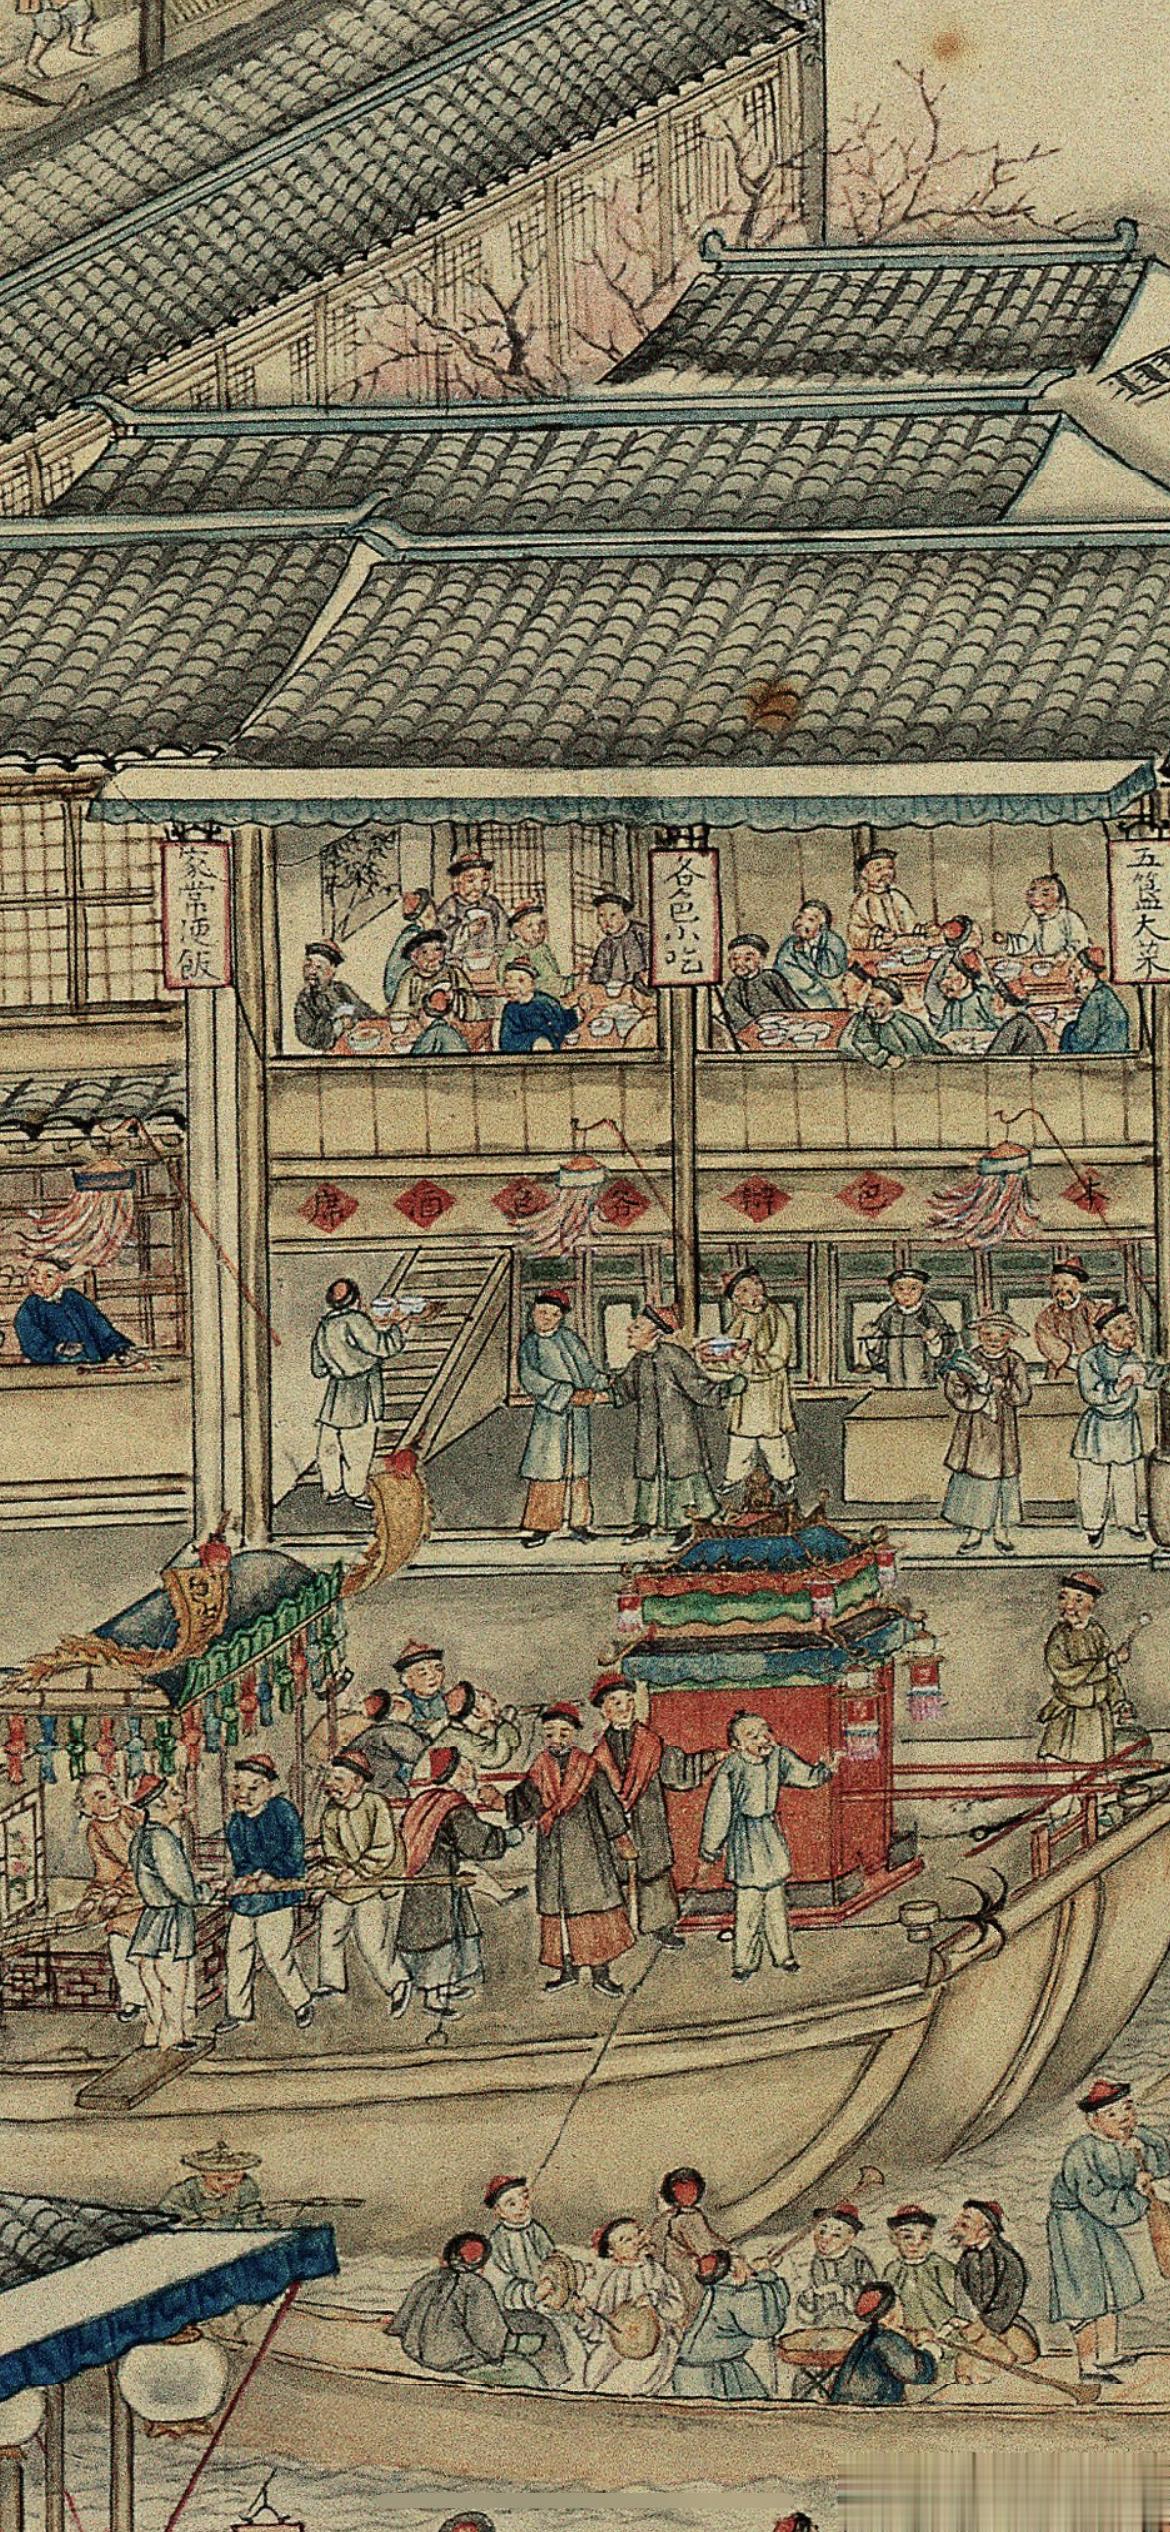 五簋大菜
各色小吃
家常便飯
本包辦各色酒席